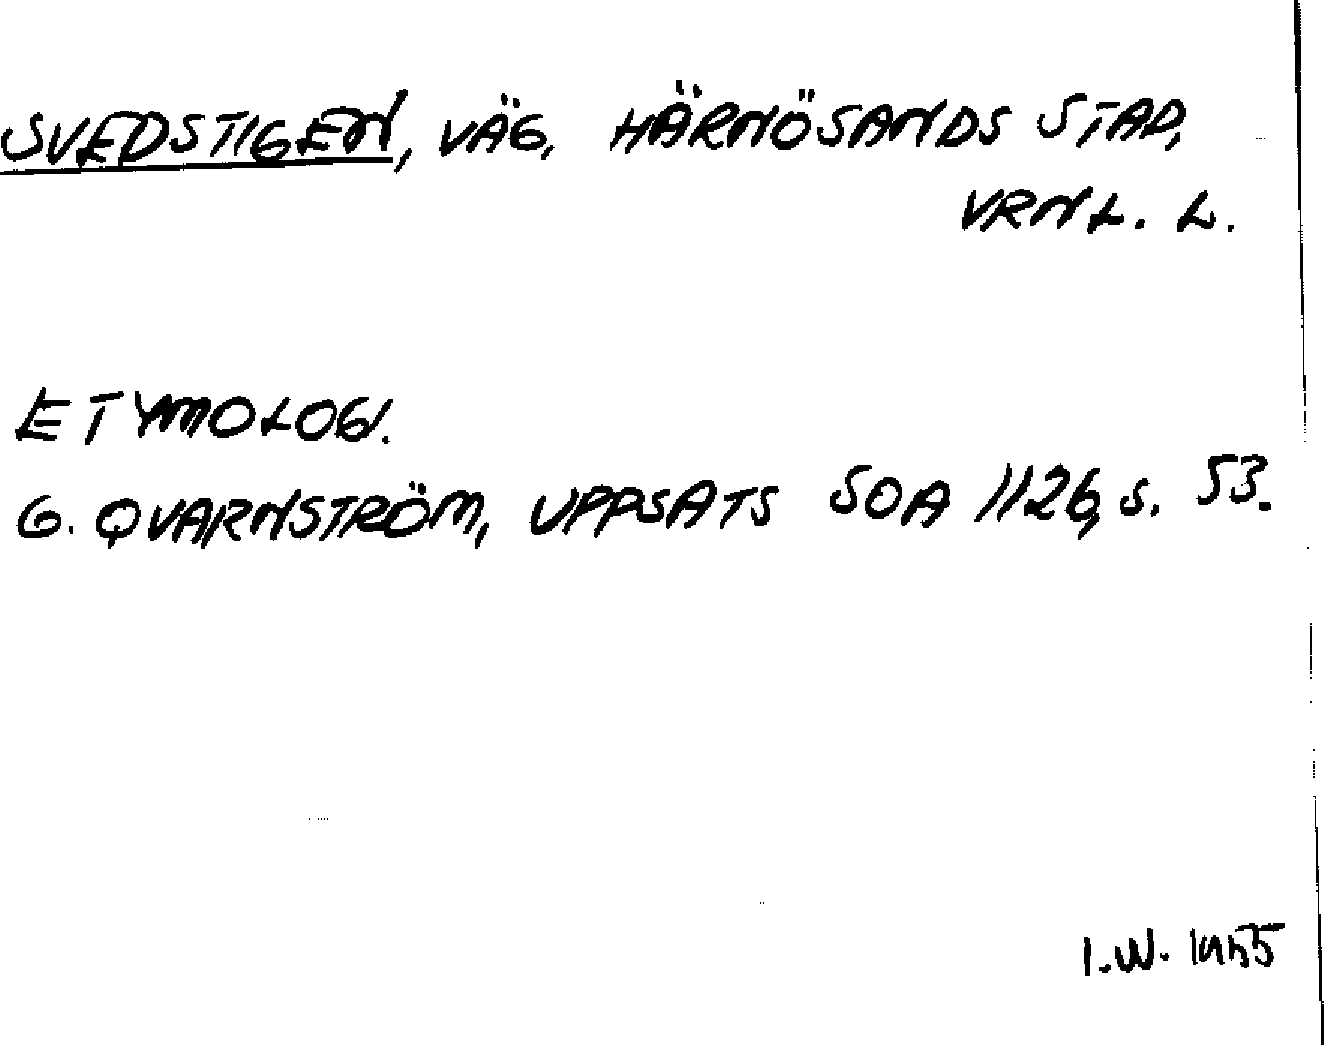 SVEDSTIGEN, VÄG, HÄRNÖSANDS STAD,
VRNL. L.
ETYMOLOGI.
G. QVARNSTRÖM, UPPSATS SOA 1126, s. 53.
I.W.